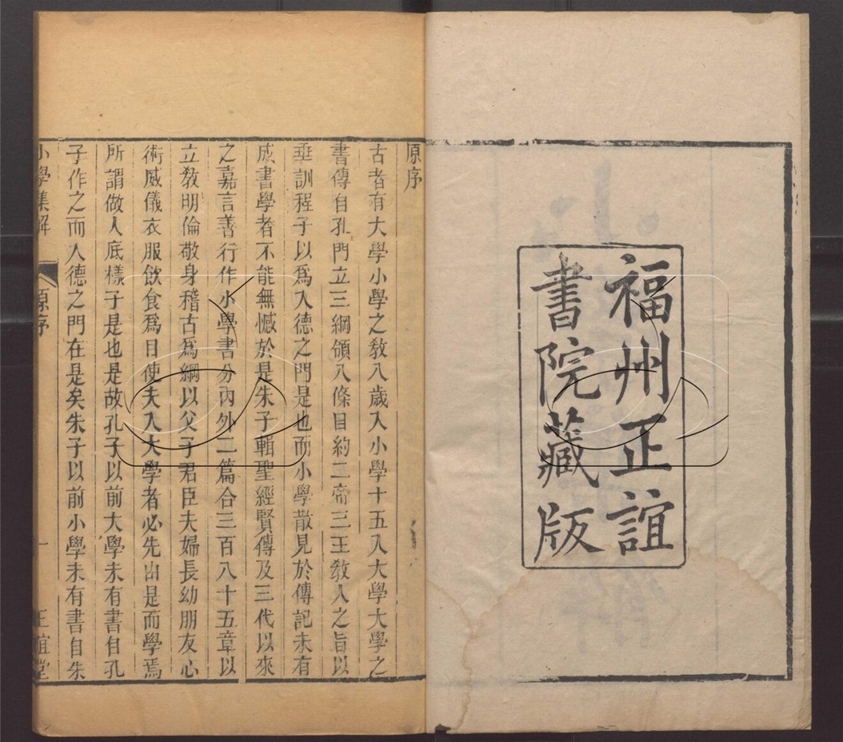 福州正誼
書院藏版
原序
古者有大學小學之教八歲入小學十五入大學大學之
書傳自孔門立三綱領八條目約二帝三王教人之旨以
垂訓程子以爲入德之門是也而小學散見於傳記未有
成書學者不能無憾於是朱子輯聖經賢傳及三代以來
之嘉言善行作小學書分內外二篇合三百八十五章以
立教明倫敬身稽古爲綱以父子君臣夫婦長幼朋友心
術威儀衣服飲食爲目使夫入大學者必先由是而學焉
所謂做人底樣子是也是故孔子以前大學未有書自孔
子作之而入德之門在是矣朱子以前小學未有書自朱
小學集解 原序 一 正誼堂